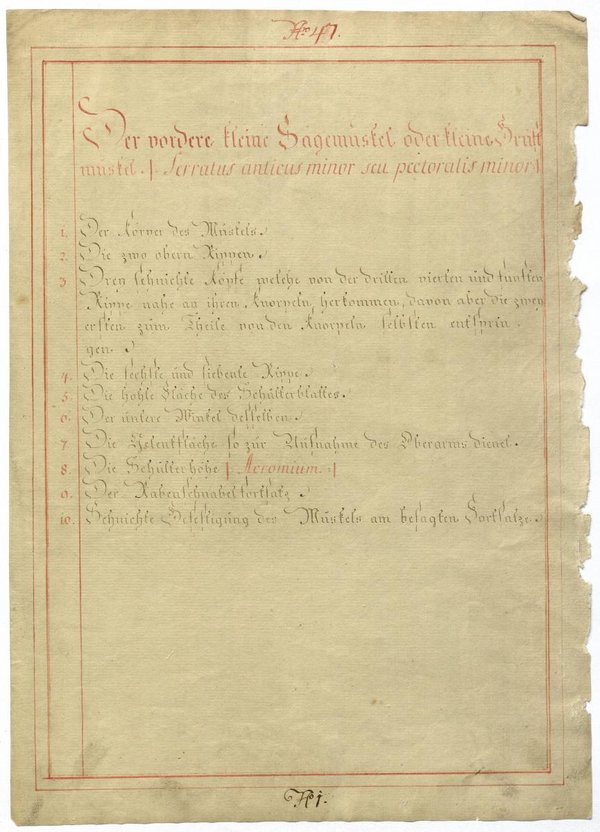 No 47.
Der vordere kleine Sagemuskel oder kleine Brust
muskel. | Serratus anticus minor seu pectoralis minor |
1. Der Körper des Muskels.
2. Die zwo obern Rippen.
3 Drey sehnichte Köpfe welche von der dritten vierten und funften
Rippe nahe an ihren Knorpeln, herkommen, davon aber die zwey
ersten zum Theile von den Knorpeln selbsten entsprin
gen.
4. Die sechste und siebente Rippe.
5. Die hohle Flache des Schulterblattes.
6. Der untere Winkel desselben.
7. Die Gelenkflache so zur Aufnahme des Oberarms dienet.
8. Die Schulterhöhe | Acromium. |
9. Der Rabenschnabelfortsatz.
10. Sehnichte Befestigung des Muskels am besagten Fortsatze.
No 1.